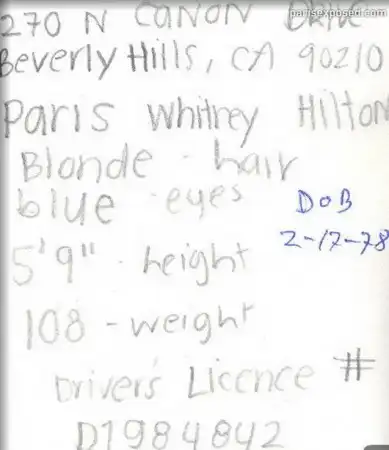 parisexposed.com
270 N CANON DRIVE
Beverly Hills, CA 90210
Paris Whitney Hilton
Blonde - hair
blue - eyes
DOB
2-17-78
5'9" - height
108 - weight
Drivers Licence #
D1984842